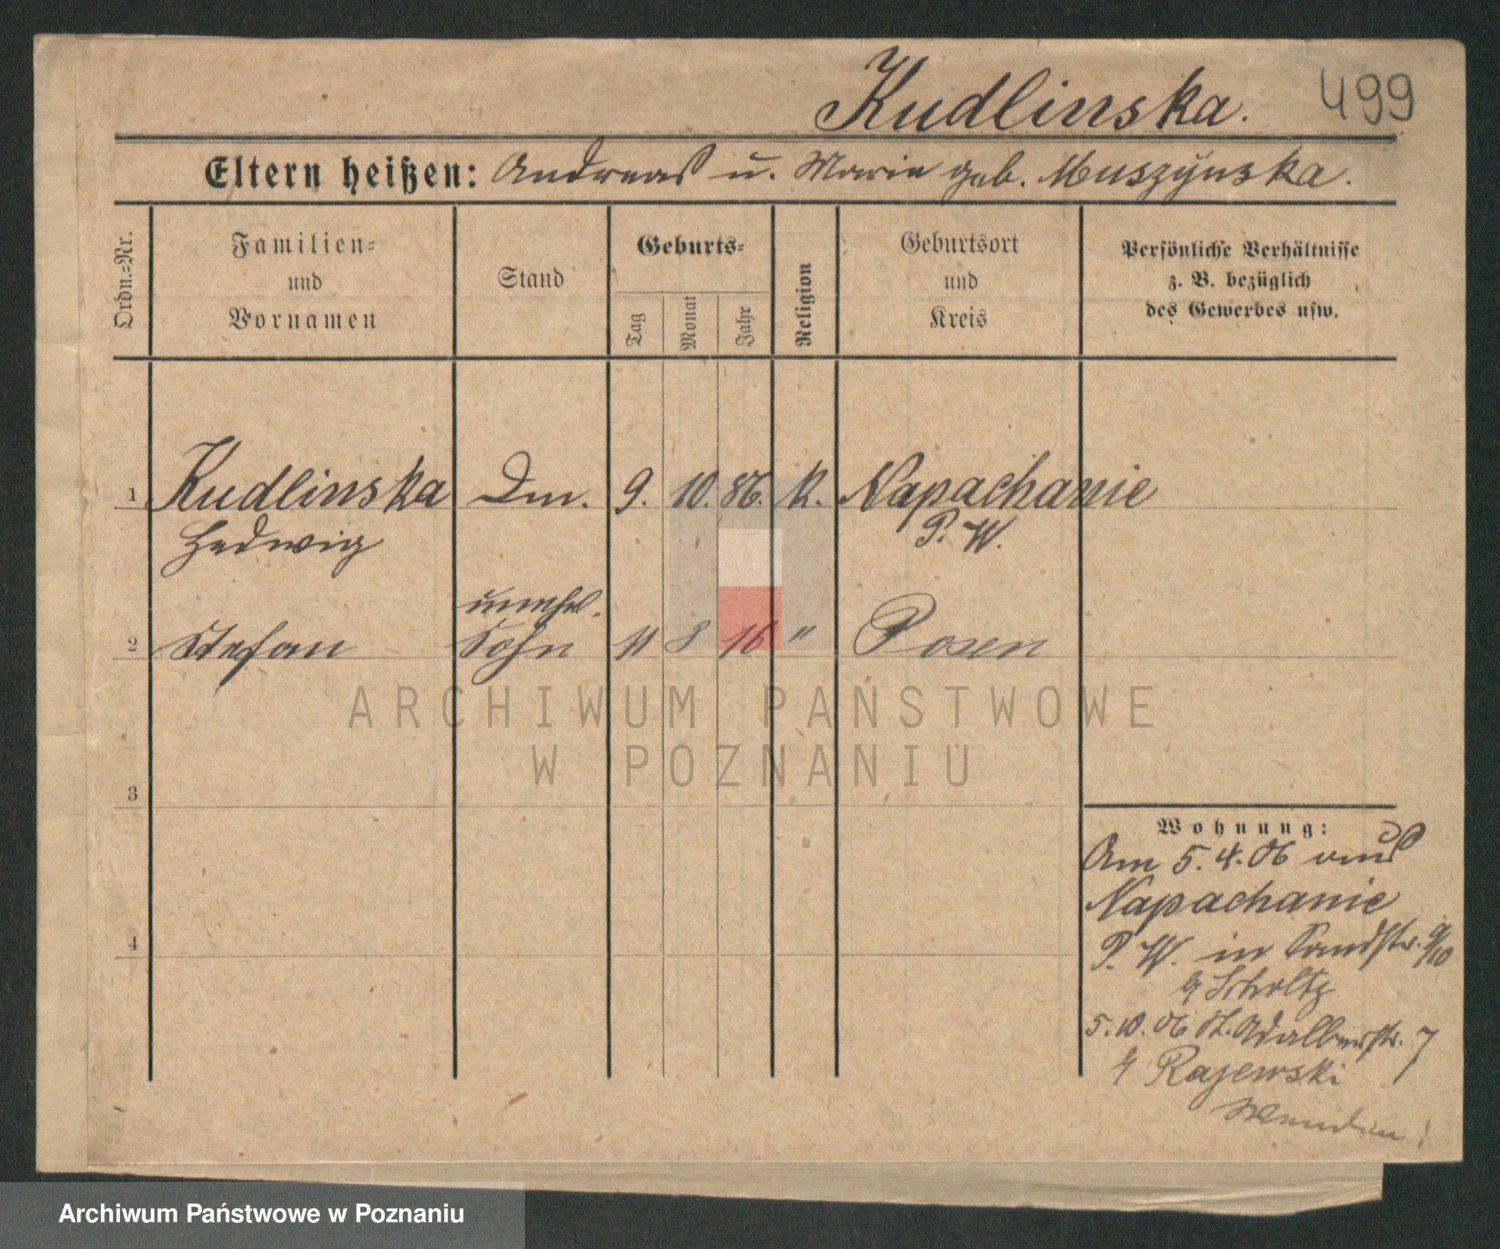 Kudlinska. 499
Eltern heißen: Andreas u. Marie geb. Muszynska.
Ordn.-Nr.
Familien-
und
Vornamen
Stand
Geburts-
Tag
Monat
Jahr
Religion
Geburtsort
und
Kreis
Persönliche Verhältnisse
z. B. bezüglich
des Gewerbes usw.
1 Kudlinska Dm. 9. 10. 86. K. Napachanie
Hedwig P. W.
unehel.
2 Stefan Sohn 11 8 16 " Posen
ARCHIWUM PAŃSTWOWE
W POZNANIU
3
4
Wohnung:
Am 5.4.06 aus
Napachanie
P. W. in Sandstr. 9/10
b/ Scholtz
5.10.06 St. Adalbertstr. 7
b/ Rajewski
Wenden!
Archiwum Państwowe w Poznaniu